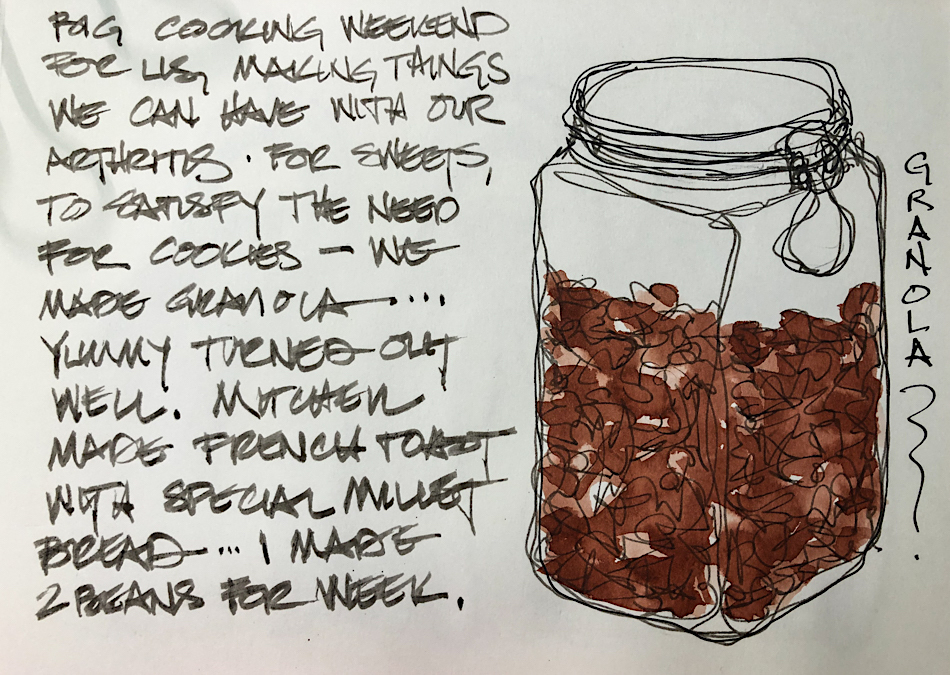 BIG COOKING WEEKEND
FOR US, MAKING THINGS
WE CAN HAVE WITH OUR
ARTHRITIS . FOR SWEETS,
TO SATISFY THE NEED
FOR COOKIES — WE
MADE GRANOLA ....
YUMMY TURNED OUT
WELL. MITCHELL
MADE FRENCH TOAST
WITH SPECIAL MILLET
BREAD ... I MADE
2 BEANS FOR WEEK.
GRANOLA